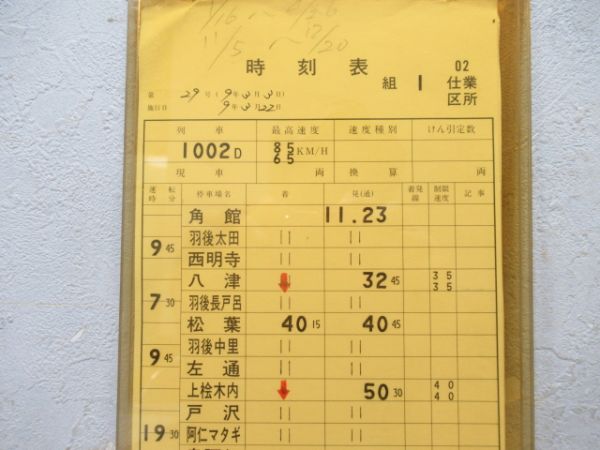 1/16 ～ 2/26
11/5 ～ 12/20
時刻表
組 1
02
仕業
区所
第 29号 (9年3月3日)
施行日 9年3月22日
列車 最高速度 速度種別 けん引定数
1002D 85 KM/H
65
現車 両 換算 両
運転 停車場名 着 発(通) 着発 制限 記事
時分 線 速度
角館 11.23
9 45 羽後太田 || ||
西明寺 || ||
八津 ↓ 32 45 35
35
7 30 羽後長戸呂 || ||
松葉 40 15 40 45
羽後中里 || ||
9 45 左通 || ||
上桧木内 ↓ 50 30 40
40
戸沢 || ||
19 30 阿仁マタギ || ||